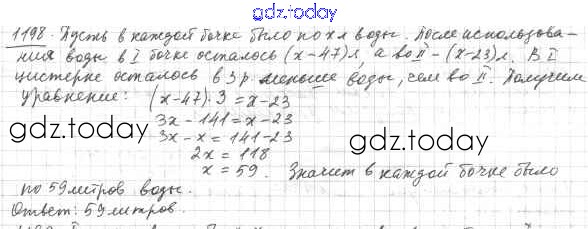 gdz.today
1198. Пусть в каждой бочке было по x л воды. После использова-
ния воды в I бочке осталось (x-47) л, а во II - (x-23) л. В I
цистерне осталось в 3 р. меньше воды, чем во II. Получим
уравнение: (x-47)·3 = x-23
3x - 141 = x - 23
gdz.today
gdz.today
3x - x = 141 - 23
2x = 118
x = 59. Значит в каждой бочке было
по 59 литров воды.
Ответ: 59 литров.